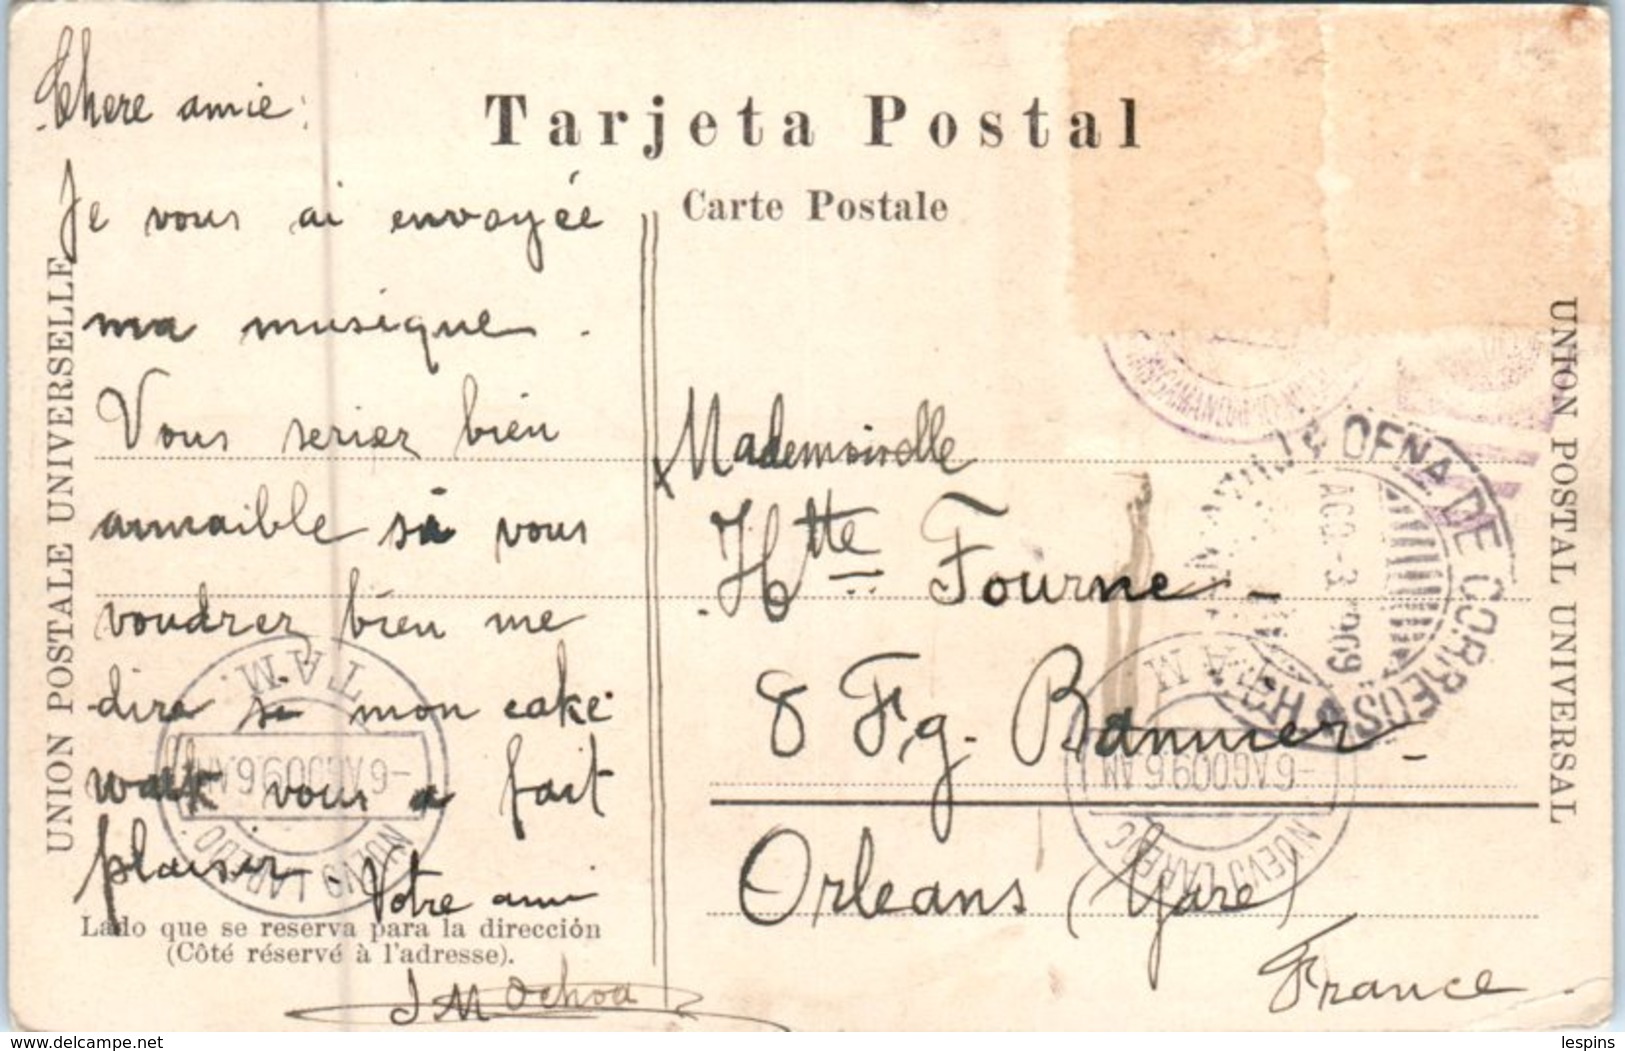 Tarjeta Postal
Carte Postale
UNION POSTALE UNIVERSELLE
UNION POSTAL UNIVERSAL
Chere amie:
Je vous ai envoyée
ma musique.
Vous serier bien
aimaible si vous
voudrer bien me
dire si mon cake
walk vous a fait
plaisir. Votre ami
J M Ochoa
Lado que se reserva para la dirección
(Côté réservé à l'adresse).
Mademoiselle
Htte Fourne -
8 Fg. Bannier -
Orleans (Gare)
France.
OFNA DE CORREOS
AGO.-3 1909
CHIH
TAM
-6 AGO 09 6 AM
NUEVO LAREDO
TAM
-6 AGO 09 6 AM
NUEVO LAREDO
delcampe.net
lespins